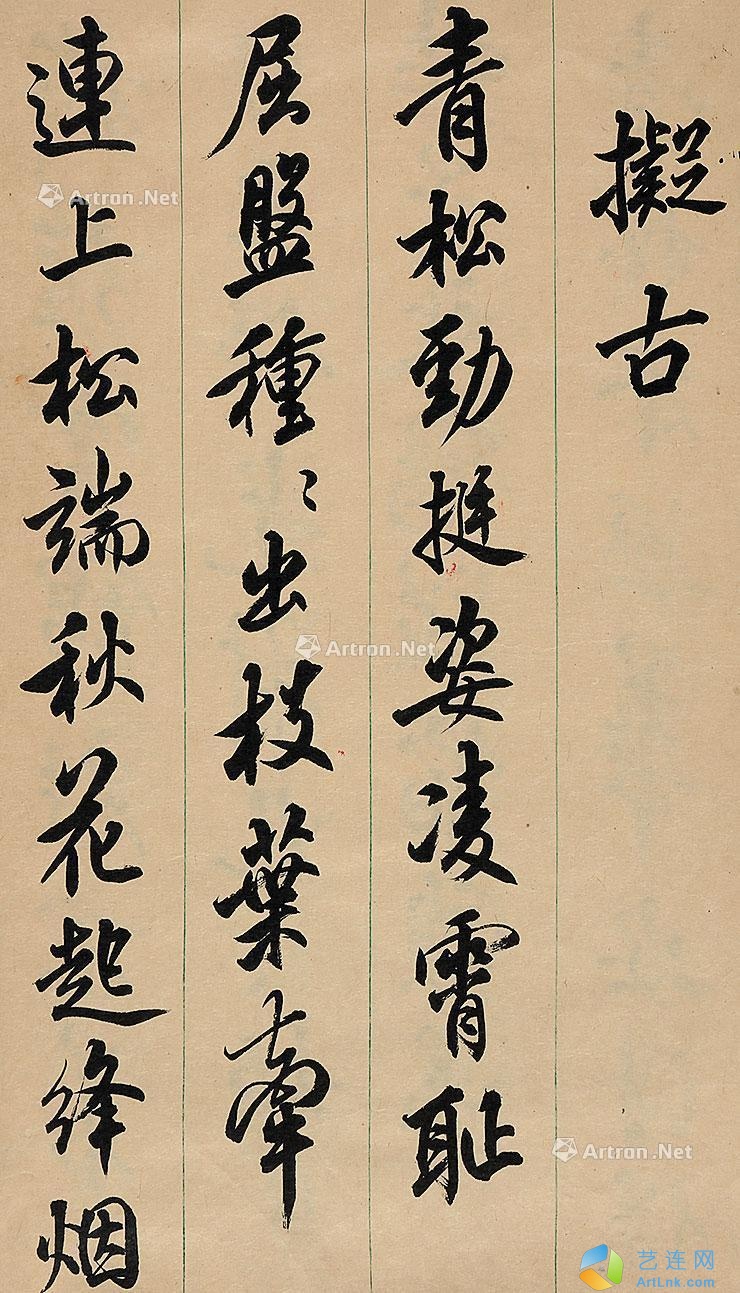 擬古
青松勁挺姿凌霄恥
屈盤種〻出枝葉牽
連上松端秋花起絳烟
Artron.Net
Artron.Net
Artron.Net
艺连网
ArtLnk.com